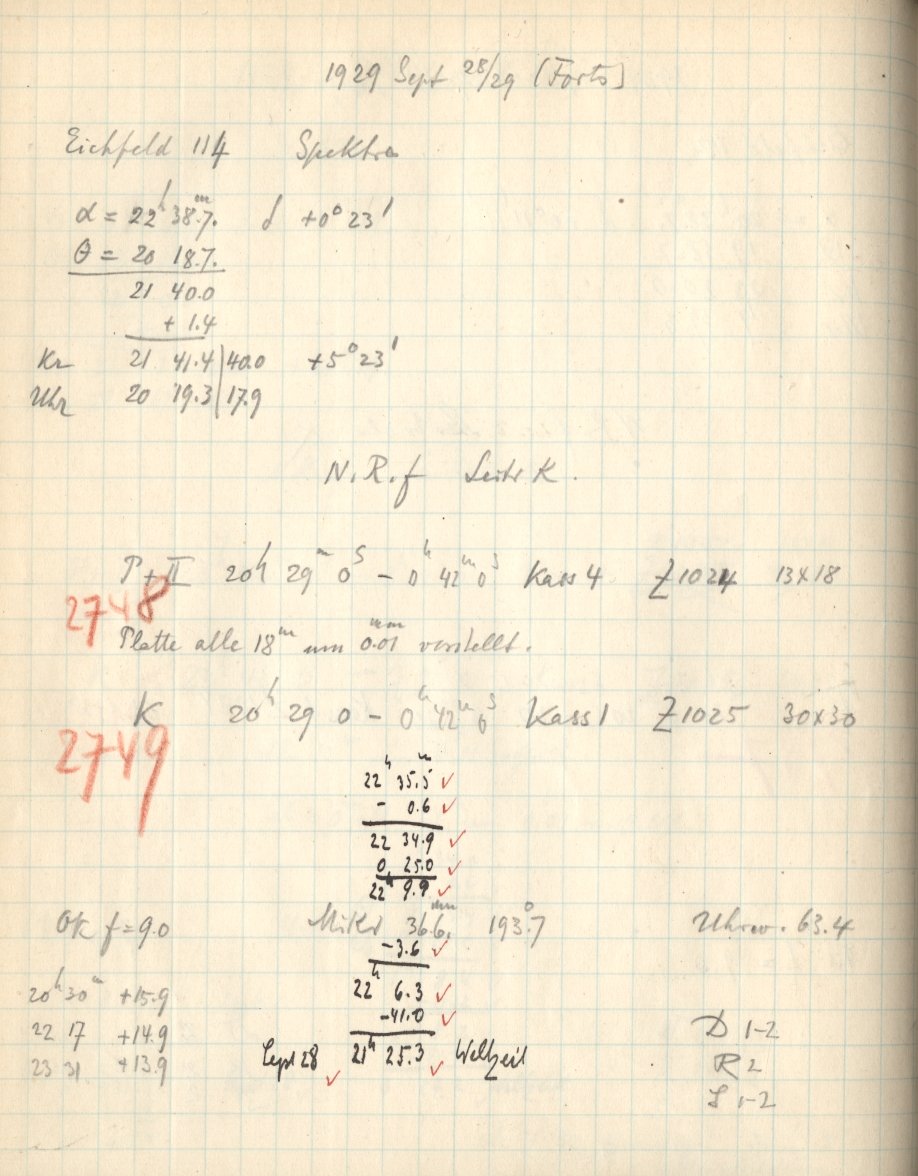 1929 Sept 28/29 (Forts)
Eichfeld 114 Spektra
α = 22h 38.7m δ +0° 23'
θ = 20 18.7.
21 40.0
+ 1.4
Kr 21 41.4 | 40.0 +5° 23'
Uhr 20 19.3 | 17.9
N.R.f Leitr K.
P+II 20h 29m 0s – 0h 42m 0s Kass 4 Z1024 13x18
2748
Platte alle 18m um 0.01mm verstellt.
K 20h 29 0 – 0h 42m 0s Kass 1 Z1025 30x30
2749
22h 35.5m ✓
- 0.6 ✓
22 34.9 ✓
0 25.0 ✓
22h 9.9 ✓
Ok f=9.0 Mikr 36.6mm 193°.7 Uhrw. 63.4
-3.6 ✓
20h 30m +15.9 22h 6.3 ✓
22 17 +14.9 -41.0 ✓ D 1-2
23 31 +13.9 Sept 28 ✓ 21h 25.3 ✓ Weltzeit R 2
S 1-2